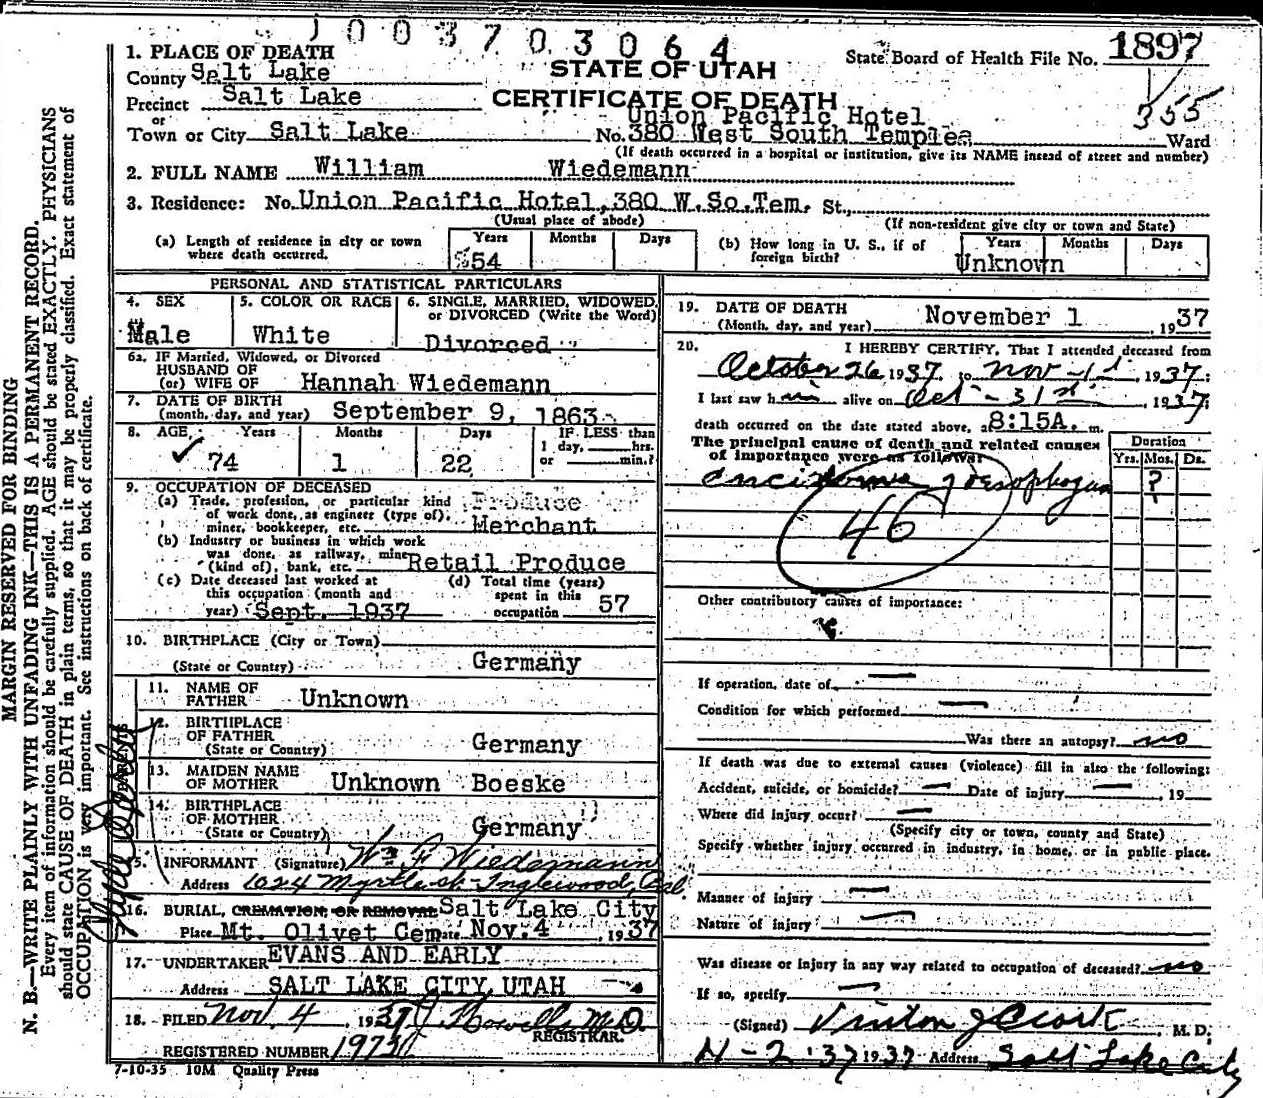 1003703064
State Board of Health File No. 1897
355
1. PLACE OF DEATH
County Salt Lake
STATE OF UTAH
Precinct Salt Lake
CERTIFICATE OF DEATH
or
Union Pacific Hotel
Town or City Salt Lake No. 380 West South Temple Ward
(If death occurred in a hospital or institution, give its NAME insead of street and number)
2. FULL NAME William Wiedemann
3. Residence: No. Union Pacific Hotel, 380 W.So.Tem. St.,
(Usual place of abode) (If non-resident give city or town and State)
(a) Length of residence in city or town where death occurred. Years 54 Months Days
(b) How long in U. S., if of foreign birth? Years Unknown Months Days
PERSONAL AND STATISTICAL PARTICULARS
4. SEX Male
5. COLOR OR RACE White
6. SINGLE, MARRIED, WIDOWED, or DIVORCED (Write the Word) Divorced
6a. IF Married, Widowed, or Divorced
HUSBAND OF
(or) WIFE OF Hannah Wiedemann
7. DATE OF BIRTH
(month, day, and year) September 9, 1863
8. AGE Years Months Days IF LESS than
1 day, hrs.
74 1 22 or min.?
9. OCCUPATION OF DECEASED
(a) Trade, profession, or particular kind of work done, as engineer (type of), miner, bookkeeper, etc. Produce Merchant
(b) Industry or business in which work was done, as railway, mine (kind of), bank, etc. Retail Produce
(c) Date deceased last worked at this occupation (month and year) Sept. 1937
(d) Total time (years) spent in this occupation 57
10. BIRTHPLACE (City or Town)
(State or Country) Germany
PARENTS
11. NAME OF FATHER Unknown
12. BIRTHPLACE OF FATHER
(State or Country) Germany
13. MAIDEN NAME OF MOTHER Unknown Boeske
14. BIRTHPLACE OF MOTHER
(State or Country) Germany
15. INFORMANT (Signature) Wm F Wiedemann
Address 1024 Myrtle St. Inglewood, Cal.
16. BURIAL, CREMATION, OR REMOVAL Salt Lake City
Place Mt. Olivet Cem Date Nov. 4, 1937
17. UNDERTAKER EVANS AND EARLY
Address SALT LAKE CITY, UTAH
18. FILED Nov. 4, 1937 Howells M.D.
REGISTRAR.
REGISTERED NUMBER 1973
7-10-35 10M Quality Press
19. DATE OF DEATH
(Month, day, and year) November 1 1937
20. I HEREBY CERTIFY, That I attended deceased from
October 26 1937 to Nov - 1st, 1937;
I last saw him alive on Oct - 31st, 1937;
death occurred on the date stated above, a 8:15A. m.
The principal cause of death and related causes of importance were as follows:
Duration
Yrs. Mos. Ds.
of oesophagus ?
46
Other contributory causes of importance:
If operation, date of —
Condition for which performed —
Was there an autopsy? no
If death was due to external causes (violence) fill in also the following:
Accident, suicide, or homicide? — Date of injury —, 19
Where did injury occur? —
(Specify city or town, county and State)
Specify whether injury occurred in industry, in home, or in public place.
Manner of injury —
Nature of injury —
Was disease or injury in any way related to occupation of deceased? no
If so, specify —
(Signed) Vinton J Clark M. D.
11-2-37 1937 Address Salt Lake City
MARGIN RESERVED FOR BINDING
N. B.—WRITE PLAINLY WITH UNFADING INK—THIS IS A PERMANENT RECORD.
Every item of information should be carefully supplied. AGE should be stated EXACTLY. PHYSICIANS
should state CAUSE OF DEATH in plain terms, so that it may be properly classified. Exact statement of
OCCUPATION is very important. See instructions on back of certificate.